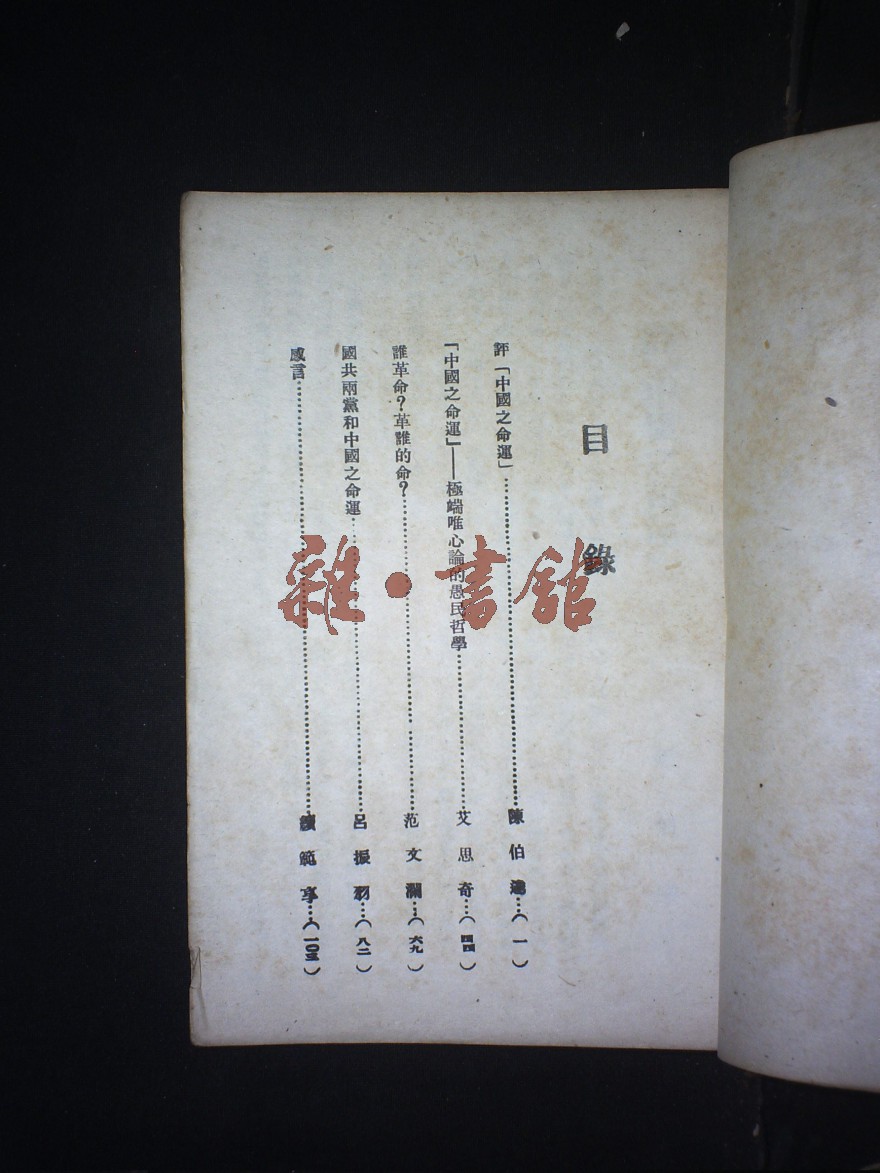 目錄
評「中國之命運」……陳伯達…(一)
「中國之命運」——極端唯心論的愚民哲學……艾思奇…(四四)
誰革命?革誰的命?……范文瀾…(六九)
國共兩黨和中國之命運……呂振羽…(八二)
感言……續範亭…(一〇三)
雜·書館